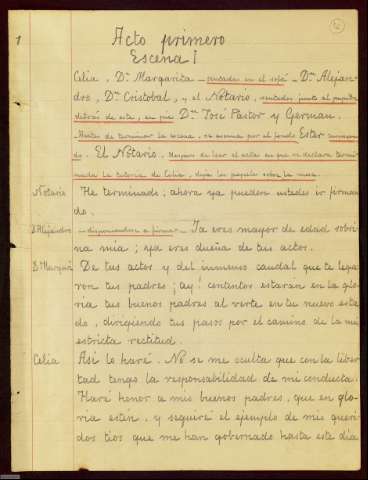 1
Acto primero
Escena I
Celia, Dª Margarita - sentadas en el sofá - Dn Alejan-
dro, Dn Cristobal, y el Notario, sentados junto al pupitre
detrás de este, en pie Dn José Pastor y German.
Antes de terminar la escena, se asoma por el fondo Ester
do. El Notario, después de leer el acta en que se declara termi-
nada la tutoria de Celia, deja los papeles sobre la mesa.
Notario He terminado; ahora ya pueden ustedes ir firman-
do.
Dn Alejandro - disponiendose a firmar - Ya eres mayor de edad sobri-
na mia; ya eres dueña de tus actos.
Dª Margarita De tus actos y del inmenso caudal que te lega-
ron tus padres; ¡ay! contentos estaran en la glo-
ria tus buenos padres al verte en tu nuevo esta-
do, dirigiendo tus pasos por el camino de la mas
estricta rectitud.
Celia Asi lo haré. No se me oculta que con la liber-
tad tengo la responsabilidad de mi conducta.
Haré honor a mis buenos padres, que en glo-
ria estén, y seguiré el ejemplo de mis queri-
dos tios que me han gobernado hasta este dia